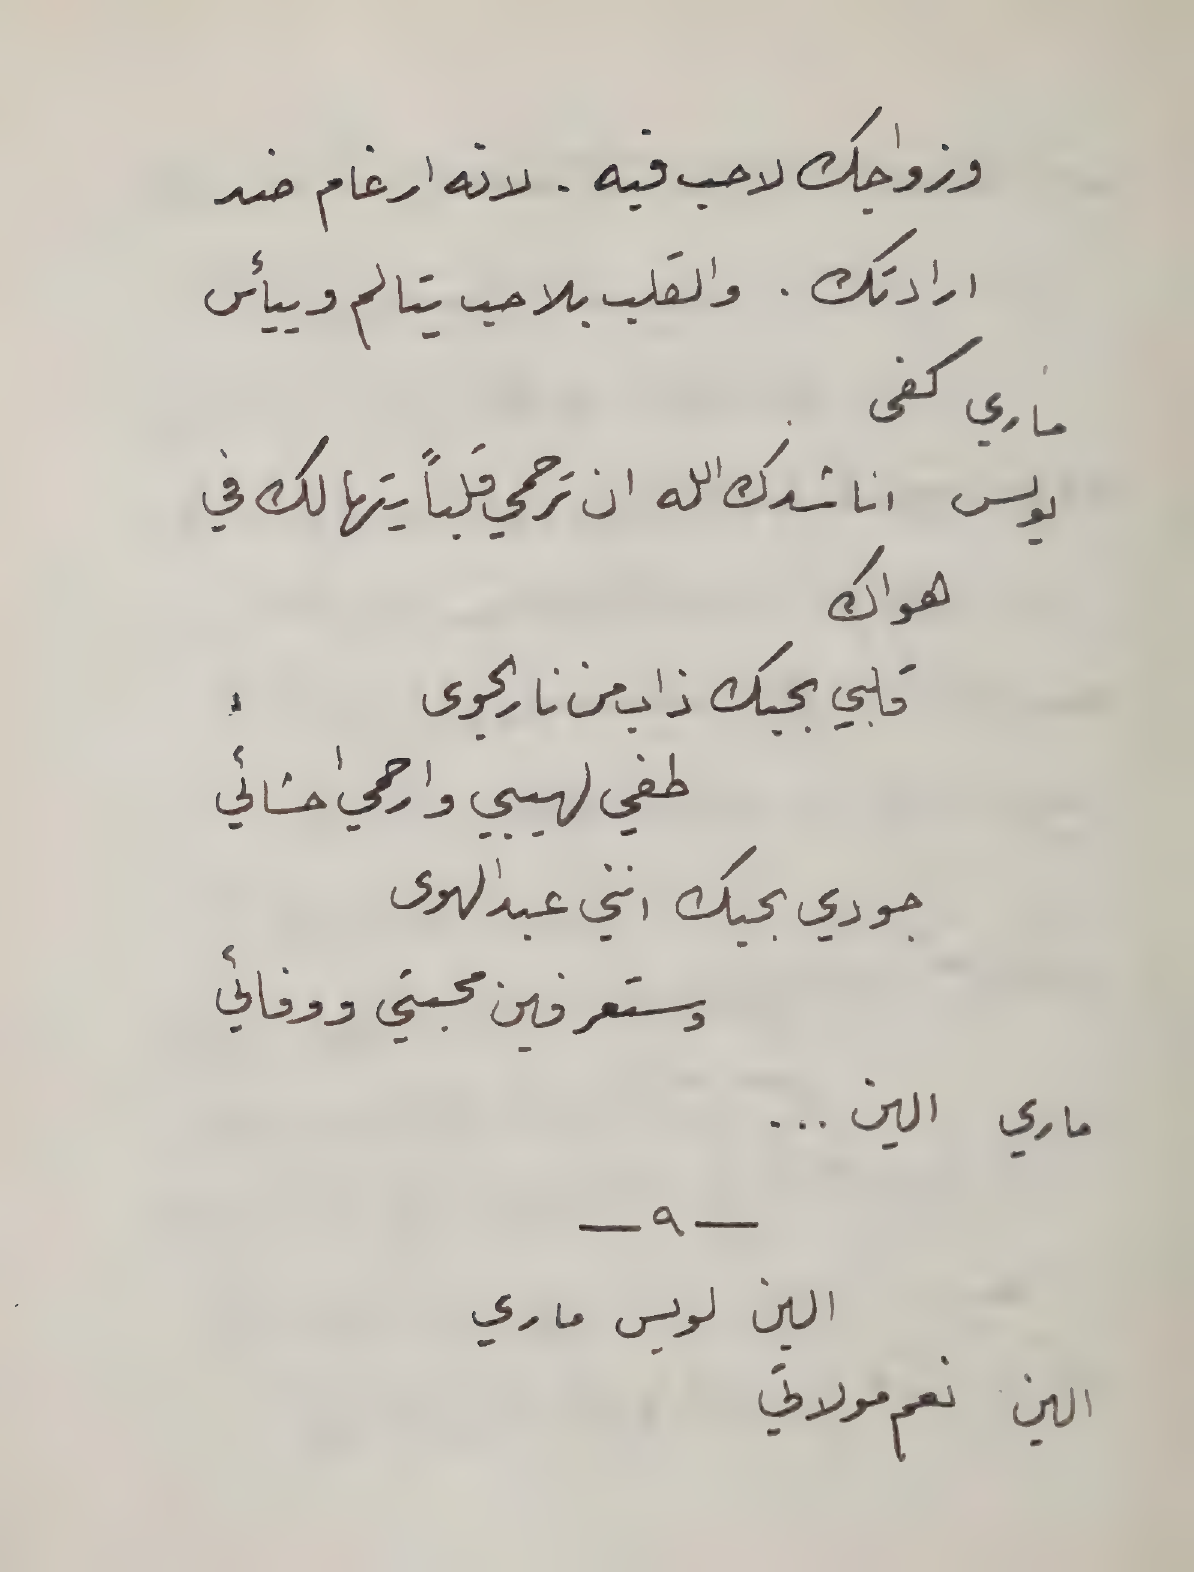 وزواجك لاحب فيه . لانه ارغام ضد
ارادتك . والقلب بلاحب يتالم وييأس
ماري كفى
لويس اناشدك الله ان ترحمي قلباً يتهالك في
هواك
قلبي بحبك ذاب من نار الجوى
طفي لهيبي وارحمي احشائي
جودي بحبك انني عبد الهوى
وستعرفين محبتي ووفائي
ماري الين ...
— ٩ —
الين لويس ماري
الين نعم مولاتي